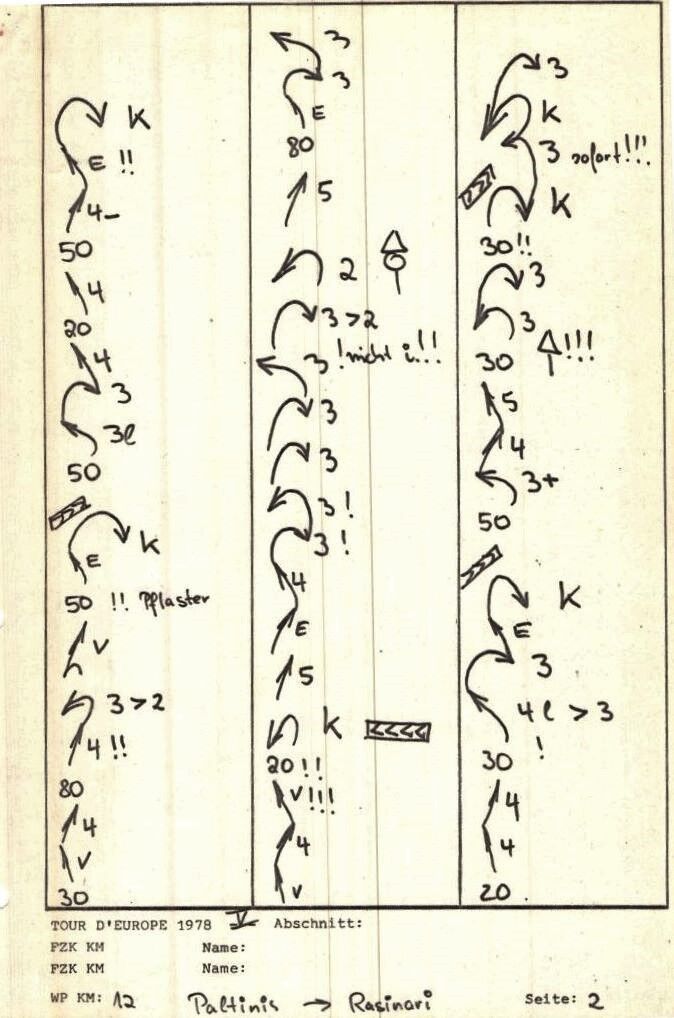 K
E !!
4-
50
4
20
4
3
3l
50
K
E
50 !! Pflaster
V
3>2
4!!
80
4
V
30
3
3
E
80
5
2
3>2
3 !nicht i.!!!
3
3
3!
3!
4
E
5
K
20!!
V!!!
4
V
3
K
3 sofort!!!
K
30!!
3
3
30 !!!
5
4
3+
50
K
E
3
4l > 3
!
30
4
4
20
TOUR D'EUROPE 1978 V Abschnitt:
FZK KM Name:
FZK KM Name:
WP KM: 12 Paltinis → Rasinari Seite: 2